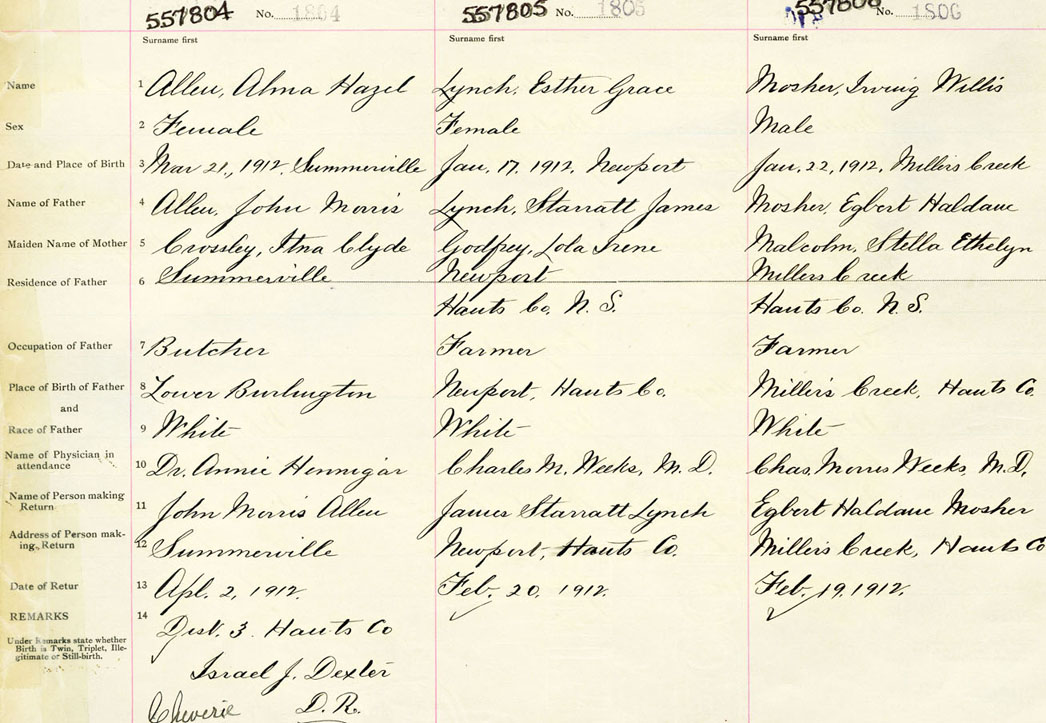 557804 No. 1804 557805 No. 1805 557806 No. 1806
Surname first Surname first Surname first
Name 1 Allen, Alma Hazel Lynch, Esther Grace Mosher, Irving Willis
Sex 2 Female Female Male
Date and Place of Birth 3 Mar 21, 1912, Summerville Jan. 17. 1912. Newport Jan. 22, 1912, Millers Creek
Name of Father 4 Allen, John Morris Lynch, Starratt James Mosher, Egbert Haldane
Maiden Name of Mother 5 Crossley, Etna Clyde Godfrey, Lola Irene Malcolm, Stella Ethelyn
Residence of Father 6 Summerville Newport Millers Creek
Hants Co. N. S. Hants Co. N. S.
Occupation of Father 7 Butcher Farmer Farmer
Place of Birth of Father 8 Lower Burlington Newport, Hants Co. Millers Creek, Hants Co.
and
Race of Father 9 White White White
Name of Physician in
attendance 10 Dr. Annie Hennigar Charles M. Weeks, M. D. Chas. Morris Weeks, M. D.
Name of Person making
Return 11 John Morris Allen James Starratt Lynch Egbert Haldane Mosher
Address of Person mak-
ing Return 12 Summerville Newport, Hants Co. Millers Creek, Hants Co
Date of Retur 13 Apl. 2, 1912. Feb. 20, 1912. Feb. 19, 1912.
REMARKS 14 Dist. 3. Hants Co
Under Remarks state whether
Birth is Twin, Triplet, Ille-
gitimate or Still-birth.
Israel J. Dexter
Cheverie D. R.